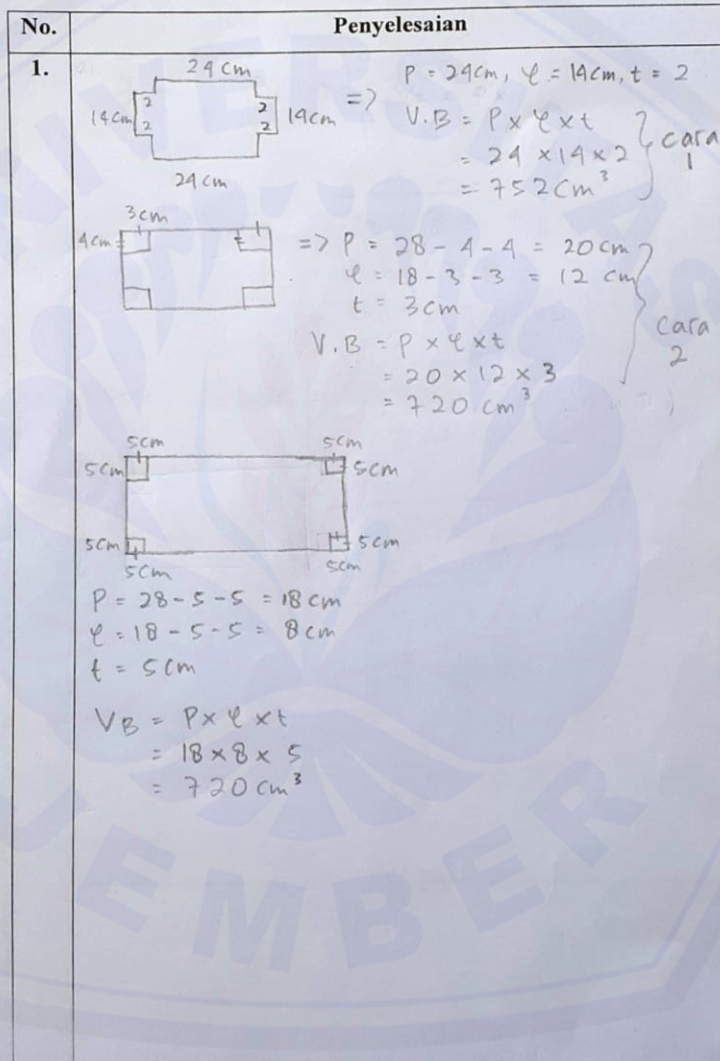 No. Penyelesaian
1.
24 cm
14cm 2 2 2 2 14cm
24 cm
=> P = 24cm, l = 14cm, t = 2
V.B = P x l x t
= 24 x 14 x 2
= 752 cm³
cara 1
3cm
4cm
=> P = 28 - 4 - 4 = 20 cm
l = 18 - 3 - 3 = 12 cm
t = 3cm
V.B = P x l x t
= 20 x 12 x 3
= 720 cm³
cara 2
5cm 5cm
5cm 5cm
5cm 5cm
5cm 5cm
P = 28 - 5 - 5 = 18 cm
l = 18 - 5 - 5 = 8cm
t = 5cm
VB = P x l x t
= 18 x 8 x 5
= 720 cm³
UNIVERSITAS
JEMBER